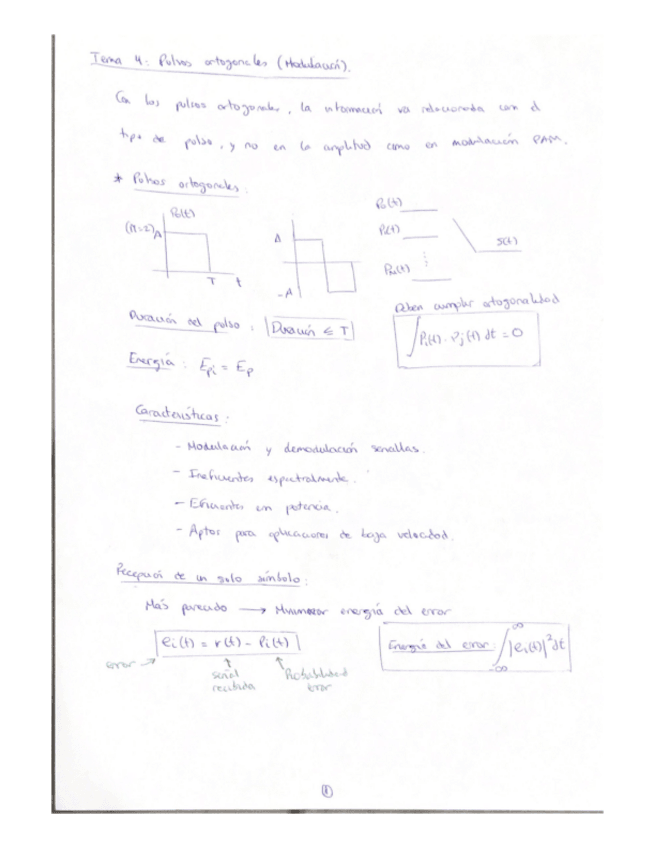 Tema 4: Pulsos ortogonales (Modulación).
Con los pulsos ortogonales, la información va relacionada con el
tipo de pulso, y no en la amplitud como en modulación PAM.
* Pulsos ortogonales:
P₀(t)
(M=2) A
T t
A
-A
P₀(t)
P₁(t)
⋮
S(t)
Duración del pulso: Duración ≤ T
Deben cumplir ortogonalidad
∫Pi(t)·Pj(t) dt = 0
Energía: Epi = Ep
Características:
- Modulación y demodulación sencillas.
- Ineficientes espectralmente.
- Eficientes en potencia.
- Aptos para aplicaciones de baja velocidad.
Recepción de un solo símbolo:
Más parecido → Minimizar energía del error
ei(t) = r(t) - Pi(t)
Energía del error: ∫ |ei(t)|² dt
∞
-∞
error
señal
recibida
Probabilidad
error
1